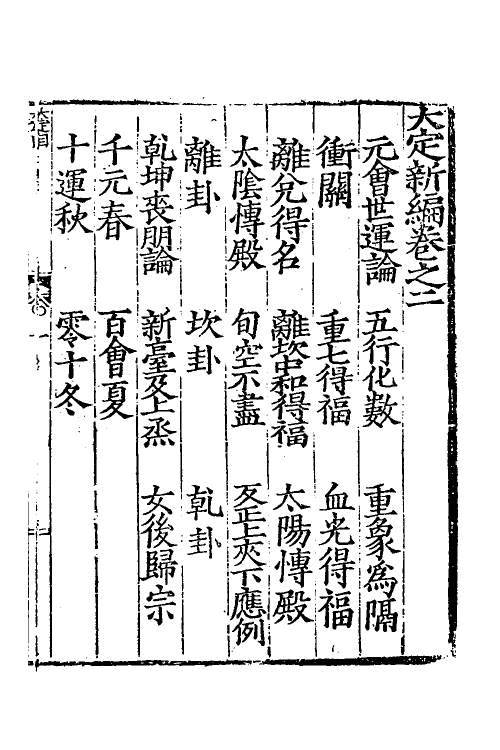 大定新編卷之二
元會世運論 五行化數 重象為隔
衝關 重七得福 血光得福
離兊得名 離坎中和得福 太陽愽殿
太陰愽殿 旬空不盡 反正上夾下應例
離卦 坎卦 乹卦
乹坤喪朋論 新臺及上烝 女後歸宗
千元春 百會夏
十運秋 零十冬